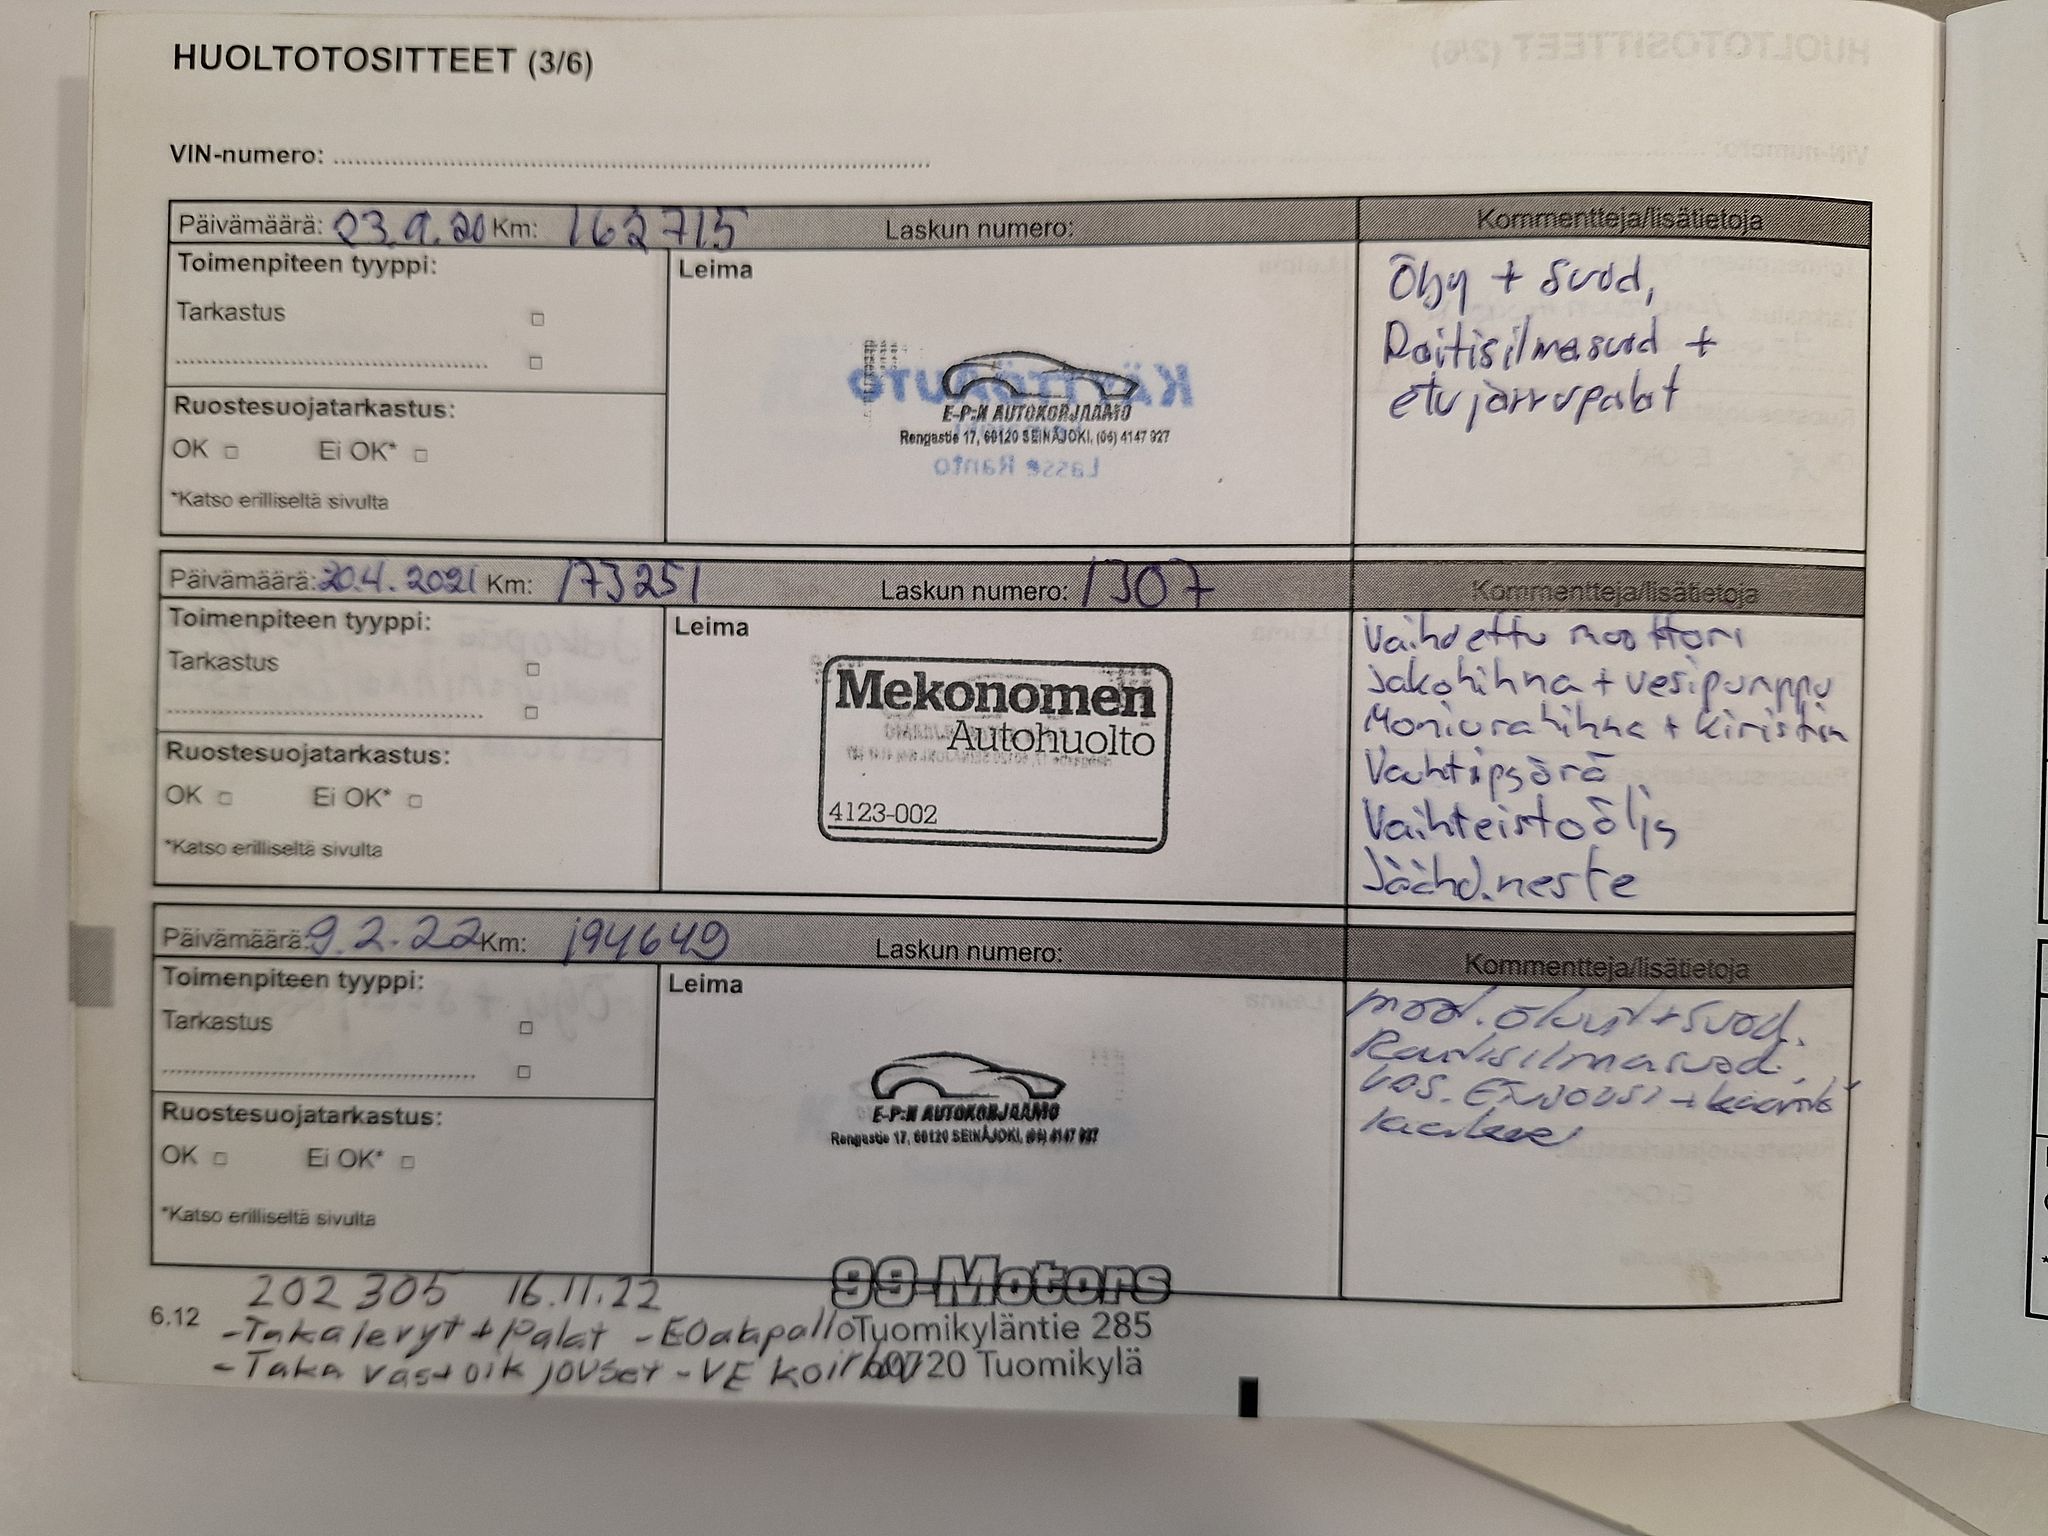 HUOLTOTOSITTEET (3/6)
VIN-numero:
Päivämäärä: 23.9.20 Km: 162715 Laskun numero: Kommentteja/lisätietoja
Toimenpiteen tyyppi:
Tarkastus
Ruostesuojatarkastus:
OK Ei OK*
*Katso erilliseltä sivulta
Leima
KÄYTTÖAUTO
E-P:N AUTOKORJAAMO
Rengastie 17, 60120 SEINÄJOKI, (06) 4147 927
Lasse Ranto
Öljy + Suod,
Raitisilmasuod +
etujarrupalat
Päivämäärä: 20.4.2021 Km: 173251 Laskun numero: 1307 Kommentteja/lisätietoja
Toimenpiteen tyyppi:
Tarkastus
Ruostesuojatarkastus:
OK Ei OK*
*Katso erilliseltä sivulta
Leima
Mekonomen
Autohuolto
4123-002
Vaihdettu moottori
Jakohihna + vesipumppu
Moniurahihna + kiristin
Vauhtipyörä
Vaihteistoöljy
Jäähd.neste
Päivämäärä: 9.2.22 Km: 194649 Laskun numero: Kommentteja/lisätietoja
Toimenpiteen tyyppi:
Tarkastus
Ruostesuojatarkastus:
OK Ei OK*
*Katso erilliseltä sivulta
Leima
E-P:N AUTOKORJAAMO
Rengastie 17, 60120 SEINÄJOKI, (06) 4147 927
moot. öljyt + suod.
Raitisilmasuod.
Vas. Etujousi +
6.12
202 305 16.11.22
-Takalevyt + Palat -EO alapallo
-Taka vastoik jouset -VE
99-Motors
Tuomikyläntie 285
60720 Tuomikylä